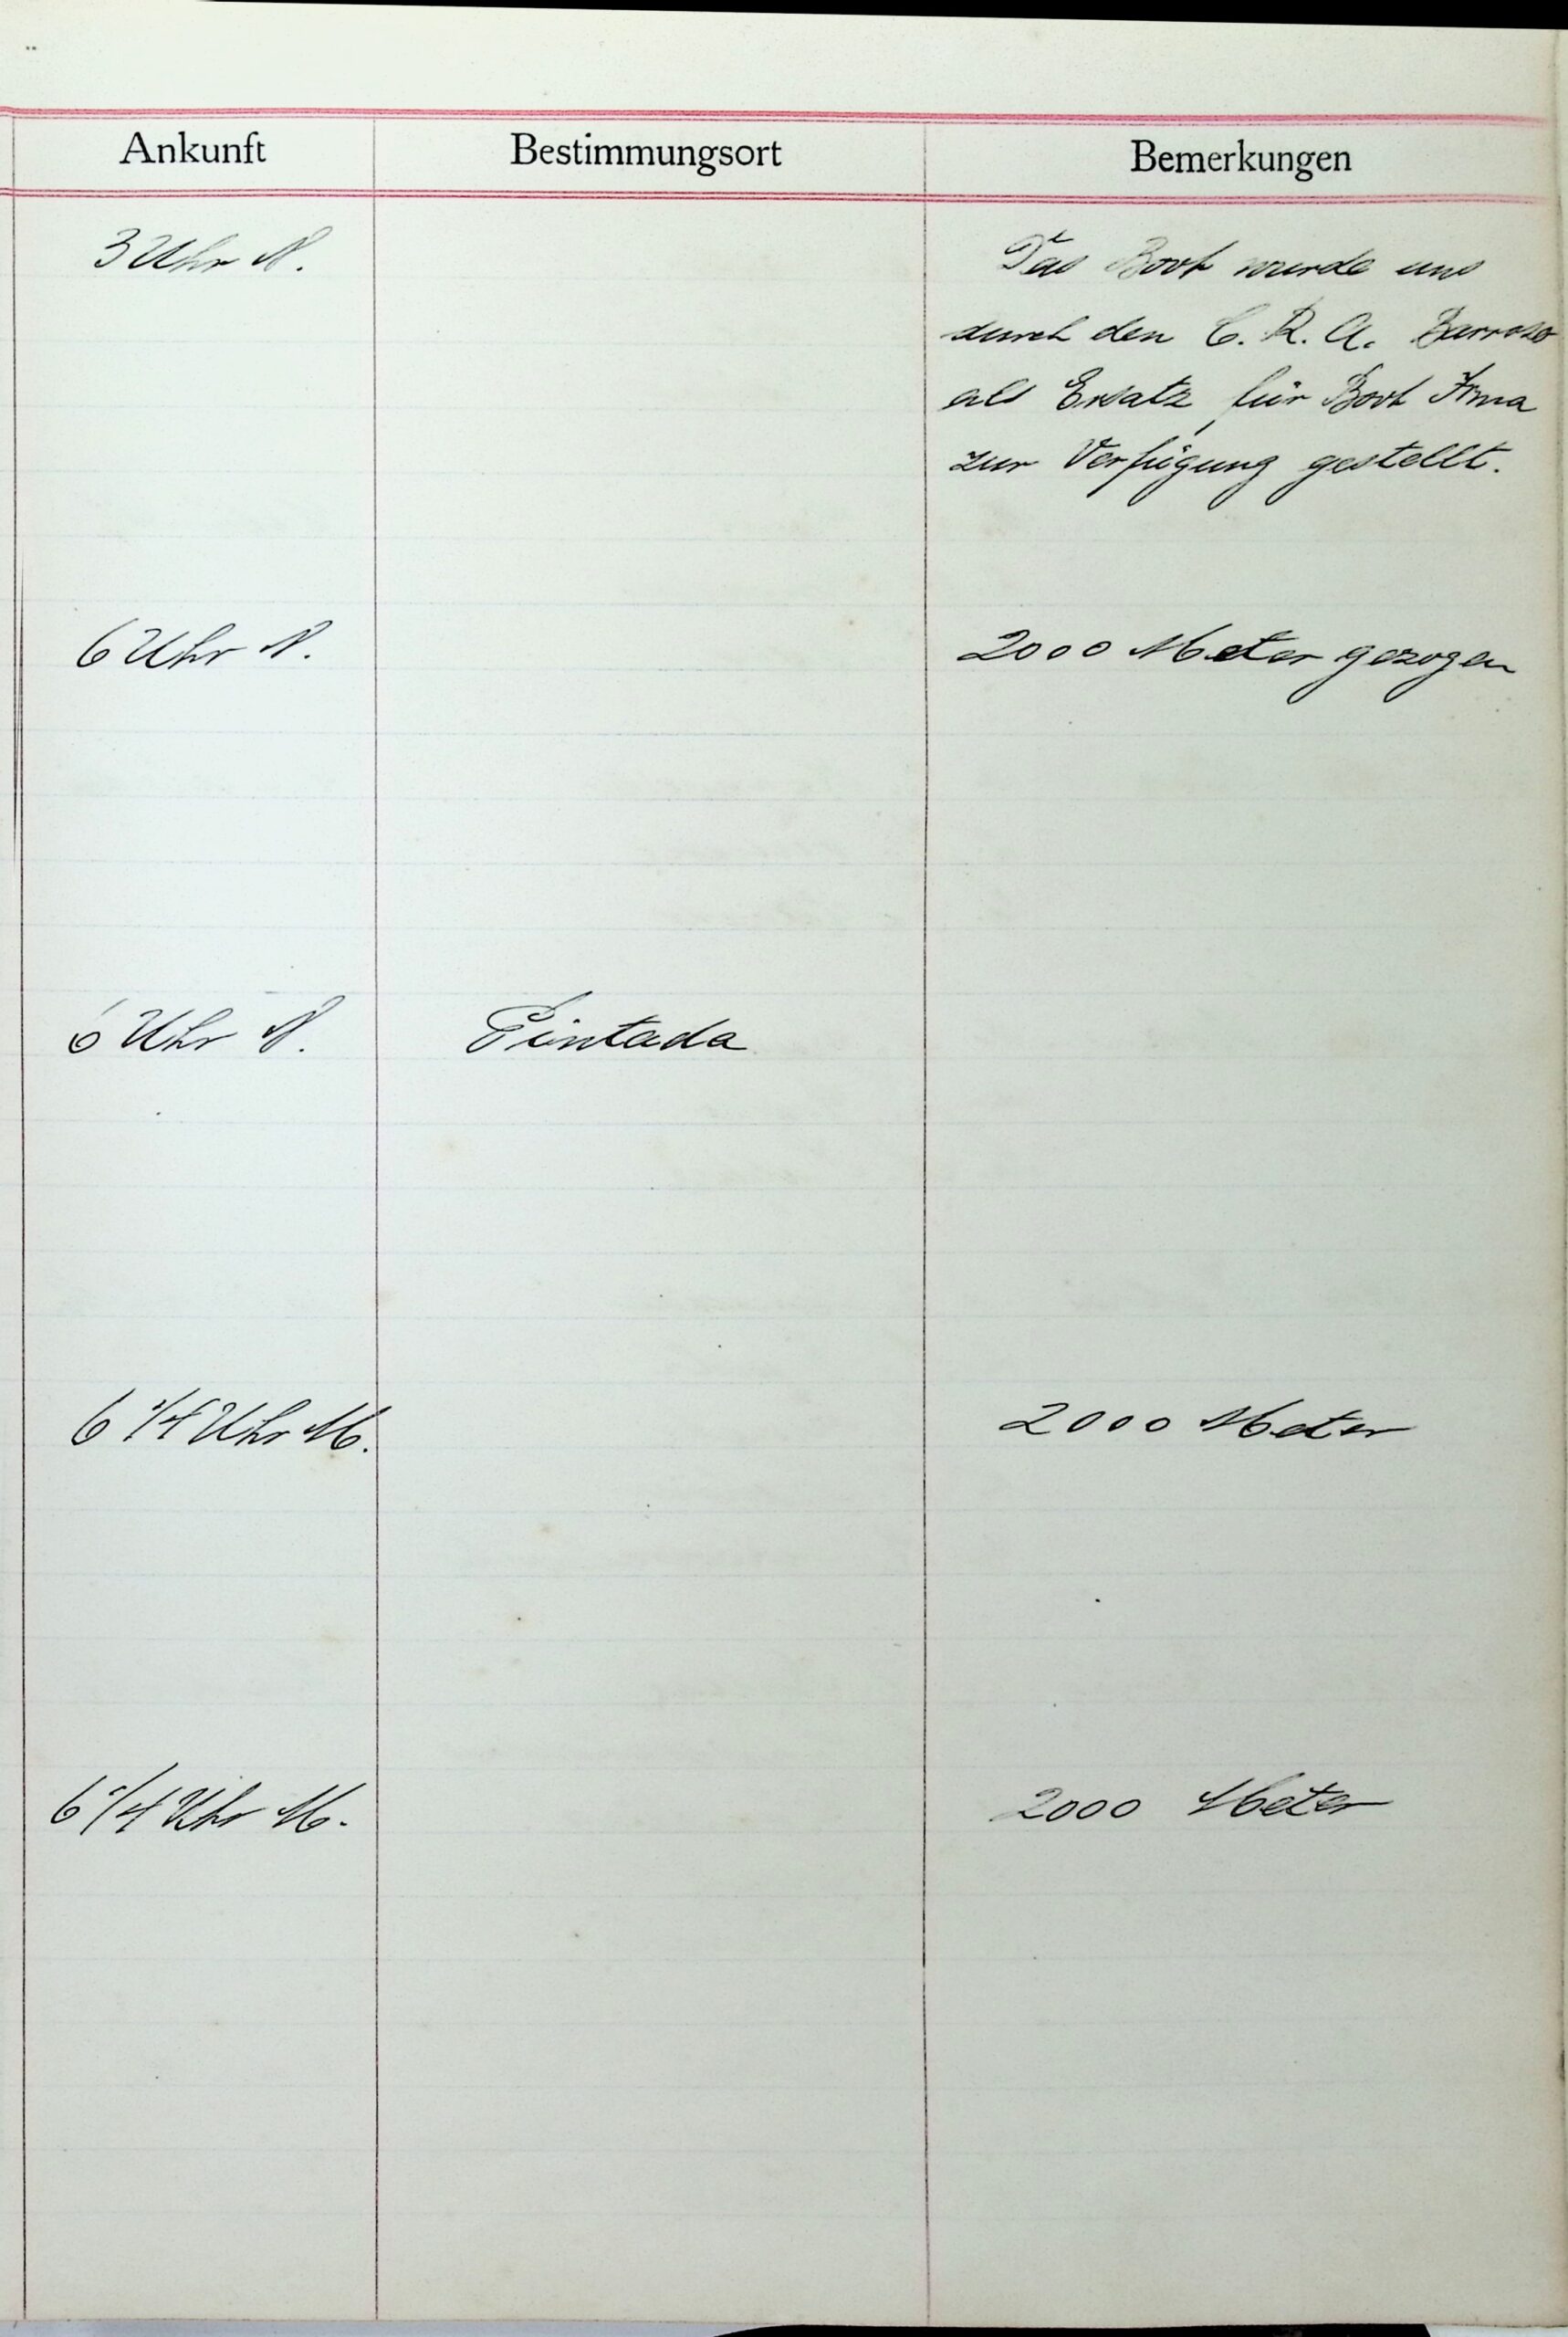 Ankunft Bestimmungsort Bemerkungen
3 Uhr N. Das Boot wurde uns
durch den C. R. A. Barroso
als Ersatz für Boot Irma
zur Verfügung gestellt.
6 Uhr N. 2000 Meter gezogen
6 Uhr N. Pintada
6 1/4 Uhr M. 2000 Meter
6 1/4 Uhr M. 2000 Meter